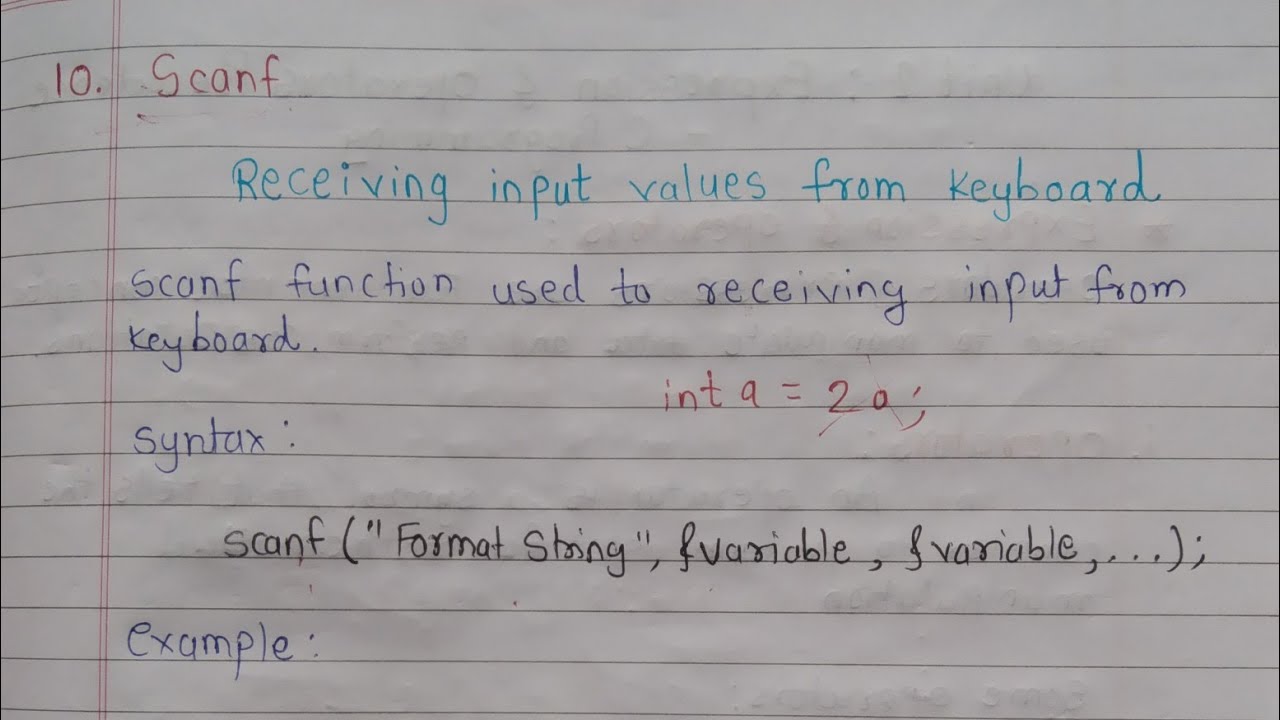 10. Scanf
Receiving input values from keyboard
scanf function used to receiving input from
keyboard.
int a = 20;
Syntax:
scanf ("Format String", &variable, &variable, ...);
Example: